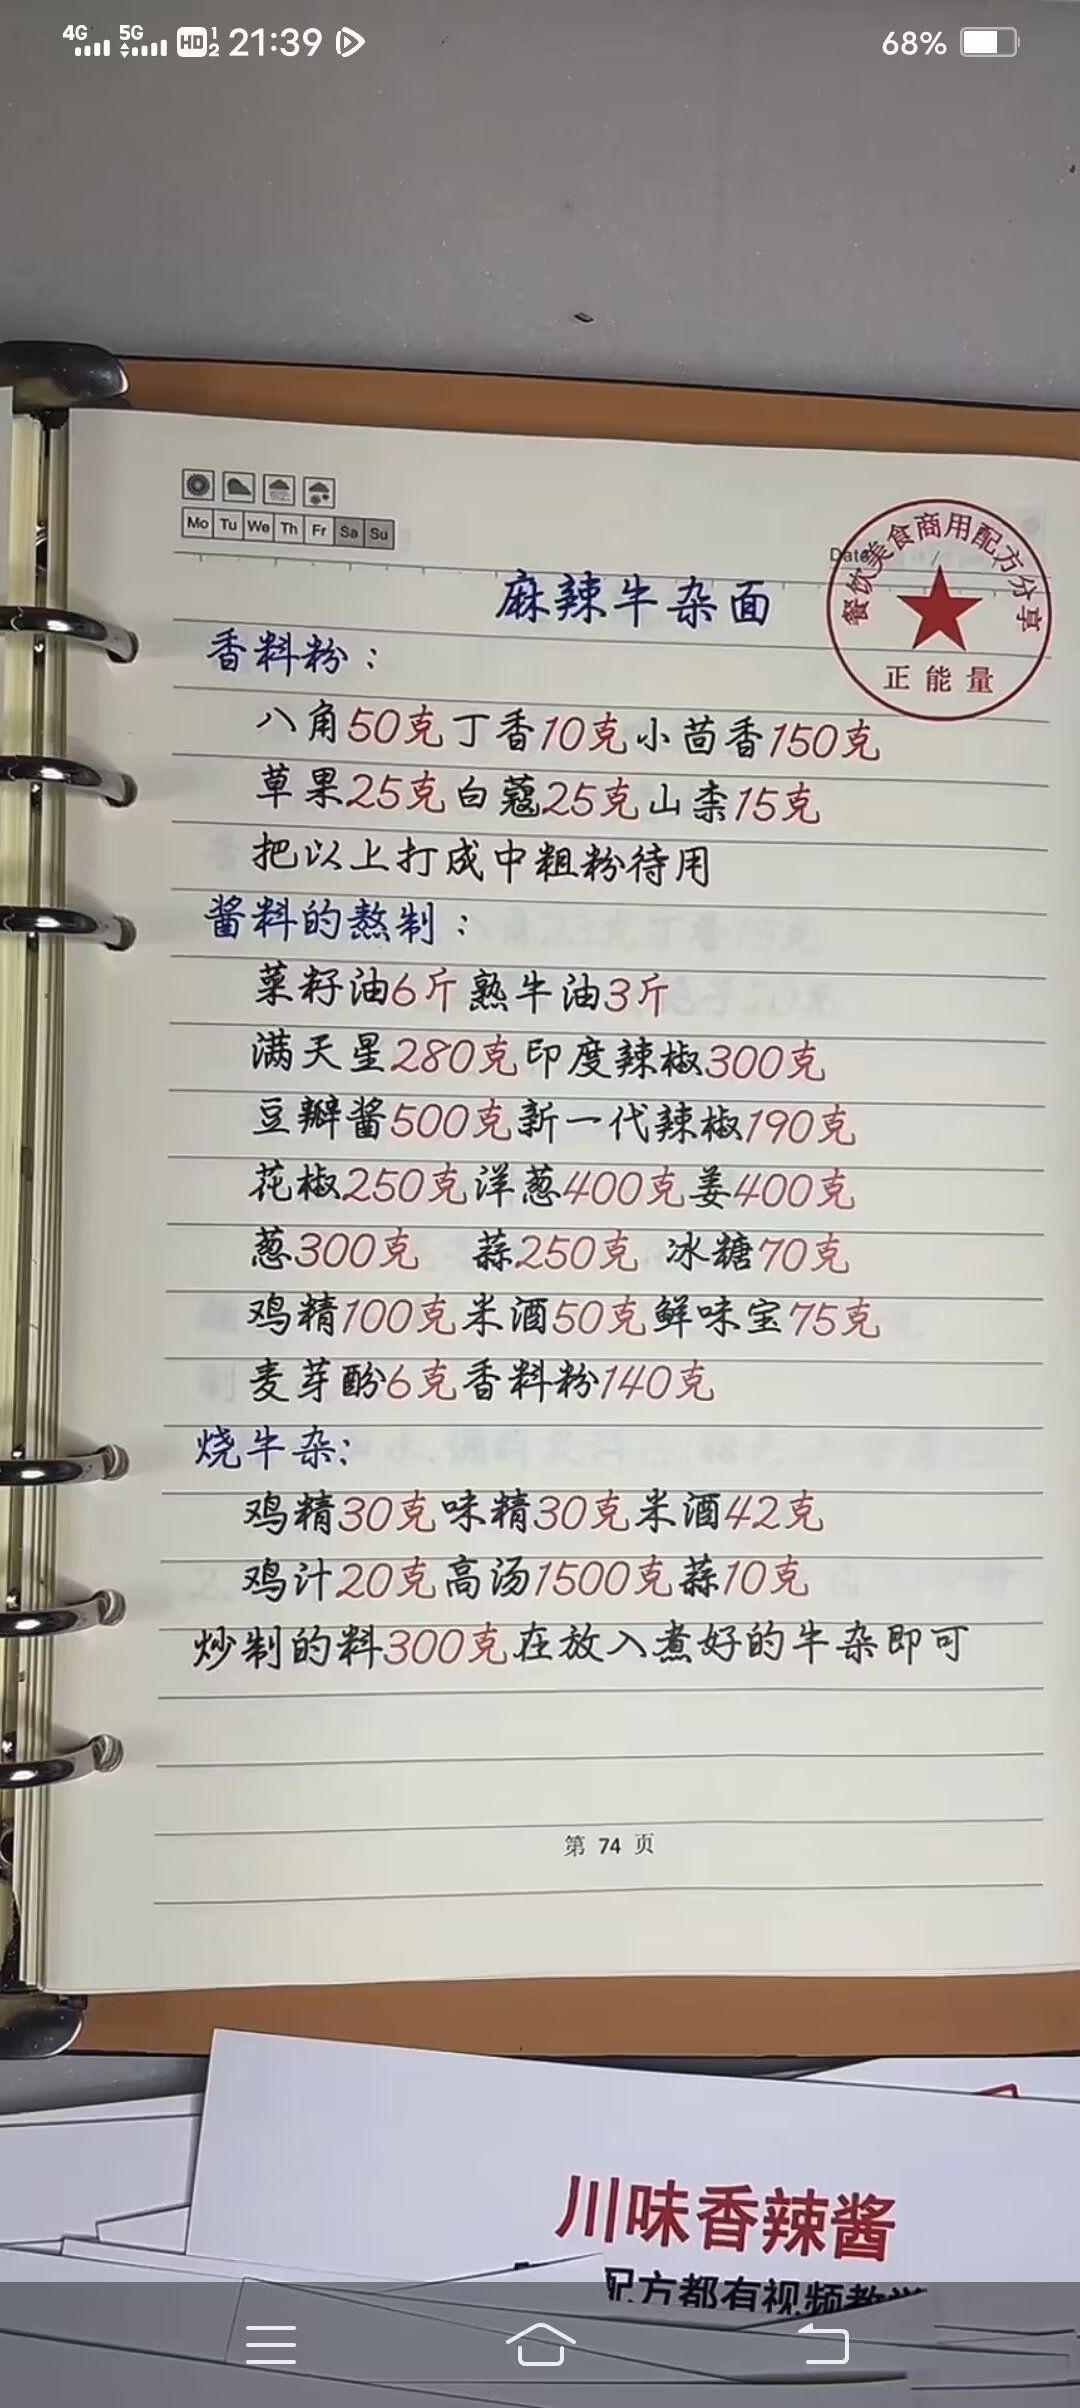 4G 5G HD 1 2 21:39 68%
Mo Tu We Th Fr Sa Su
Date
餐饮美食商用配方分享
正能量
麻辣牛杂面
香料粉：
八角50克丁香10克小茴香150克
草果25克白蔻25克山柰15克
把以上打成中粗粉待用
酱料的熬制：
菜籽油6斤熟牛油3斤
满天星280克印度辣椒300克
豆瓣酱500克新一代辣椒190克
花椒250克洋葱400克姜400克
葱300克 蒜250克 冰糖70克
鸡精100克米酒50克鲜味宝75克
麦芽酚6克香料粉140克
烧牛杂：
鸡精30克味精30克米酒42克
鸡汁20克高汤1500克蒜10克
炒制的料300克在放入煮好的牛杂即可
第 74 页
川味香辣酱
配方都有视频教学